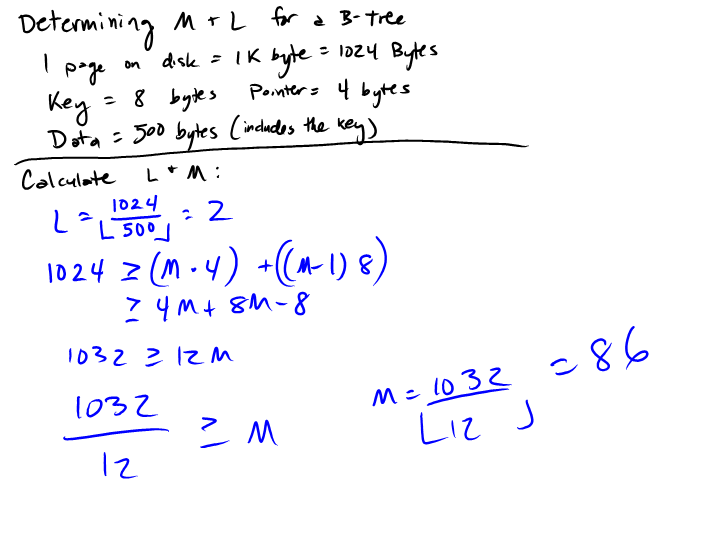 Determining M + L for a B-tree
1 page on disk = 1K byte = 1024 Bytes
Key = 8 bytes Pointer = 4 bytes
Data = 500 bytes (includes the key)
Calculate L + M:
L = ⌊1024/500⌋ = 2
1024 ≥ (M · 4) + ((M-1) 8)
≥ 4M + 8M - 8
1032 ≥ 12M
1032/12 ≥ M
M = ⌊1032/12⌋ = 86